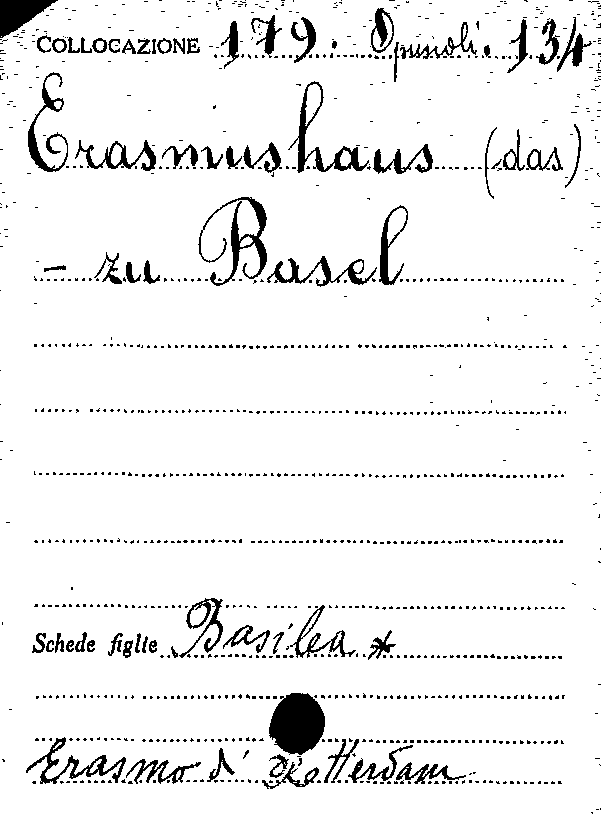 COLLOCAZIONE 179. Opuscoli. 134
Erasmushaus (das)
- zu Basel
Schede figlie Basilea *
Erasmo d' Rotterdam